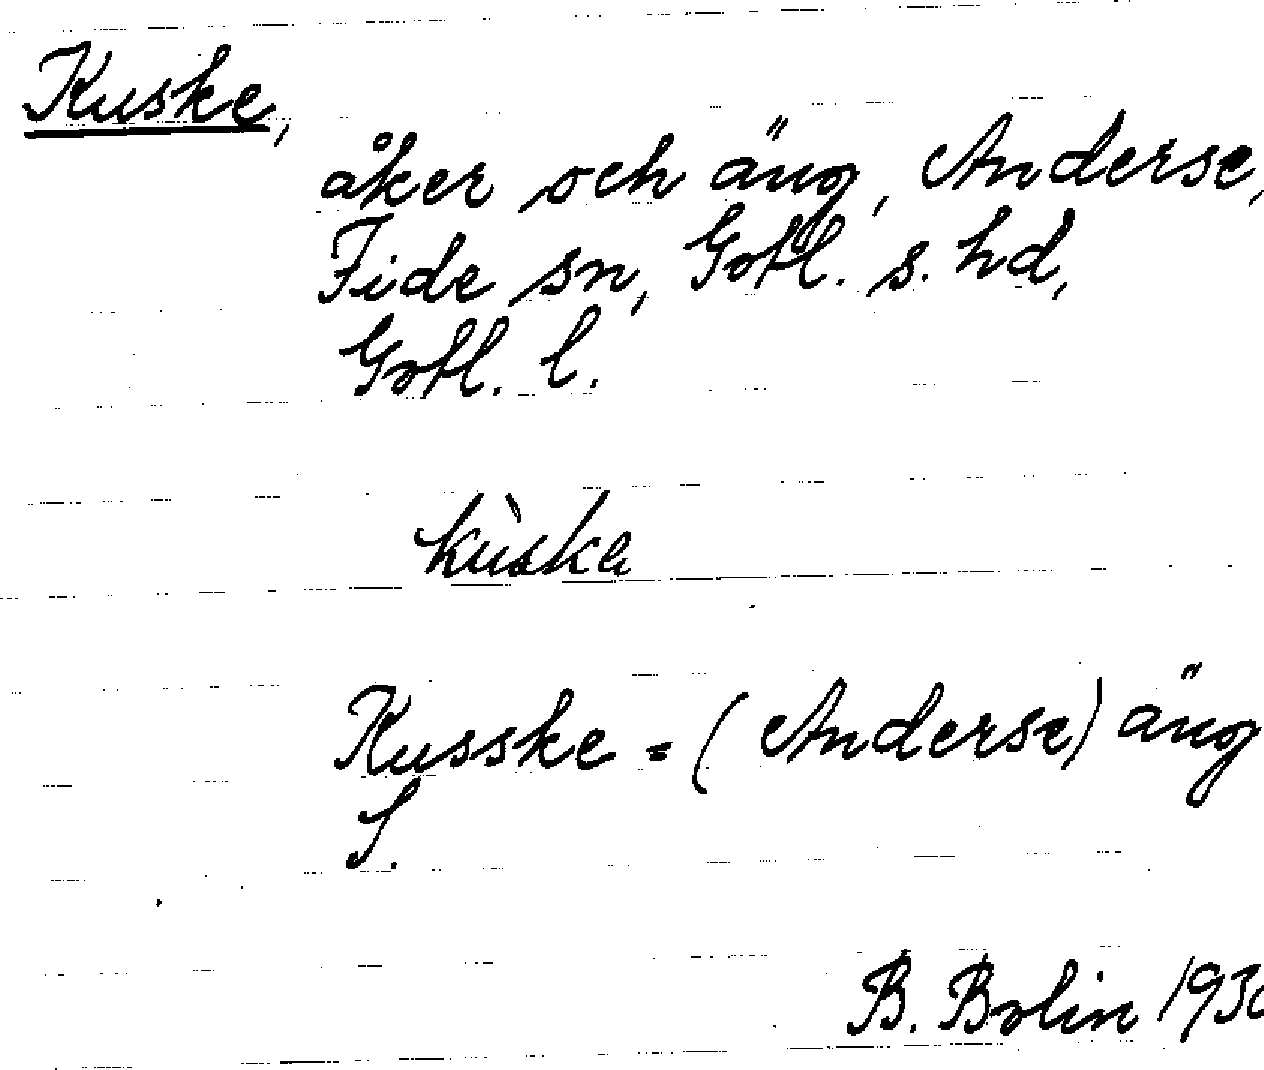 Kuske,
åker och äng, Anderse,
Fide sn, Gotl. s. hd,
Gotl. l.
kùska
Kusske = (Anderse) äng
S.
B. Bolin 193